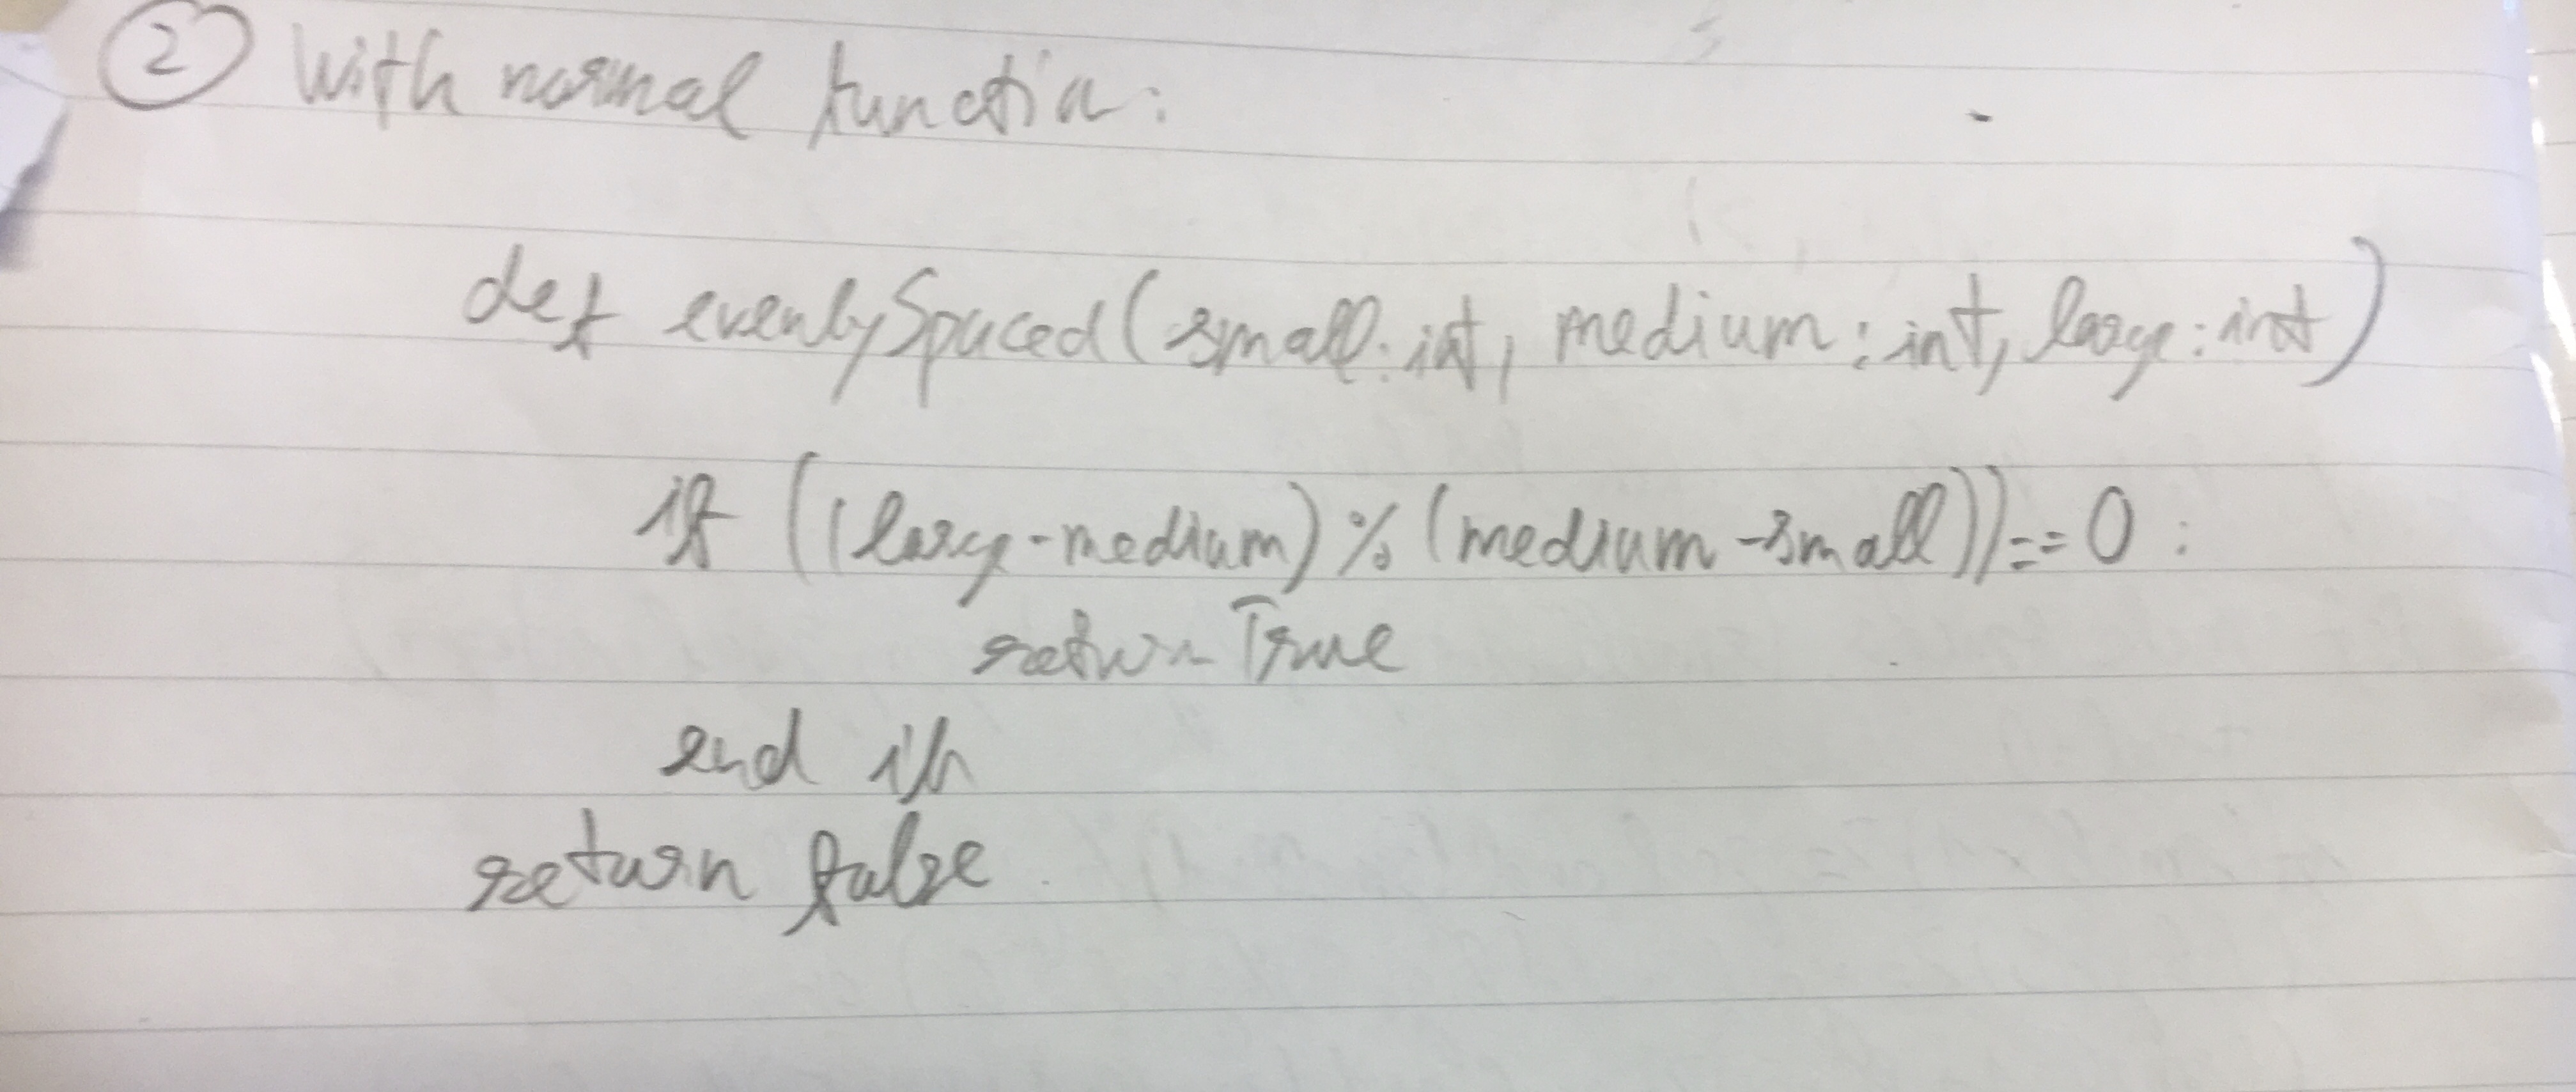 ② With normal function:
def evenlySpaced(small: int, medium: int, large: int)
if ((large-medium) % (medium-small))==0 :
return True
end if
return false